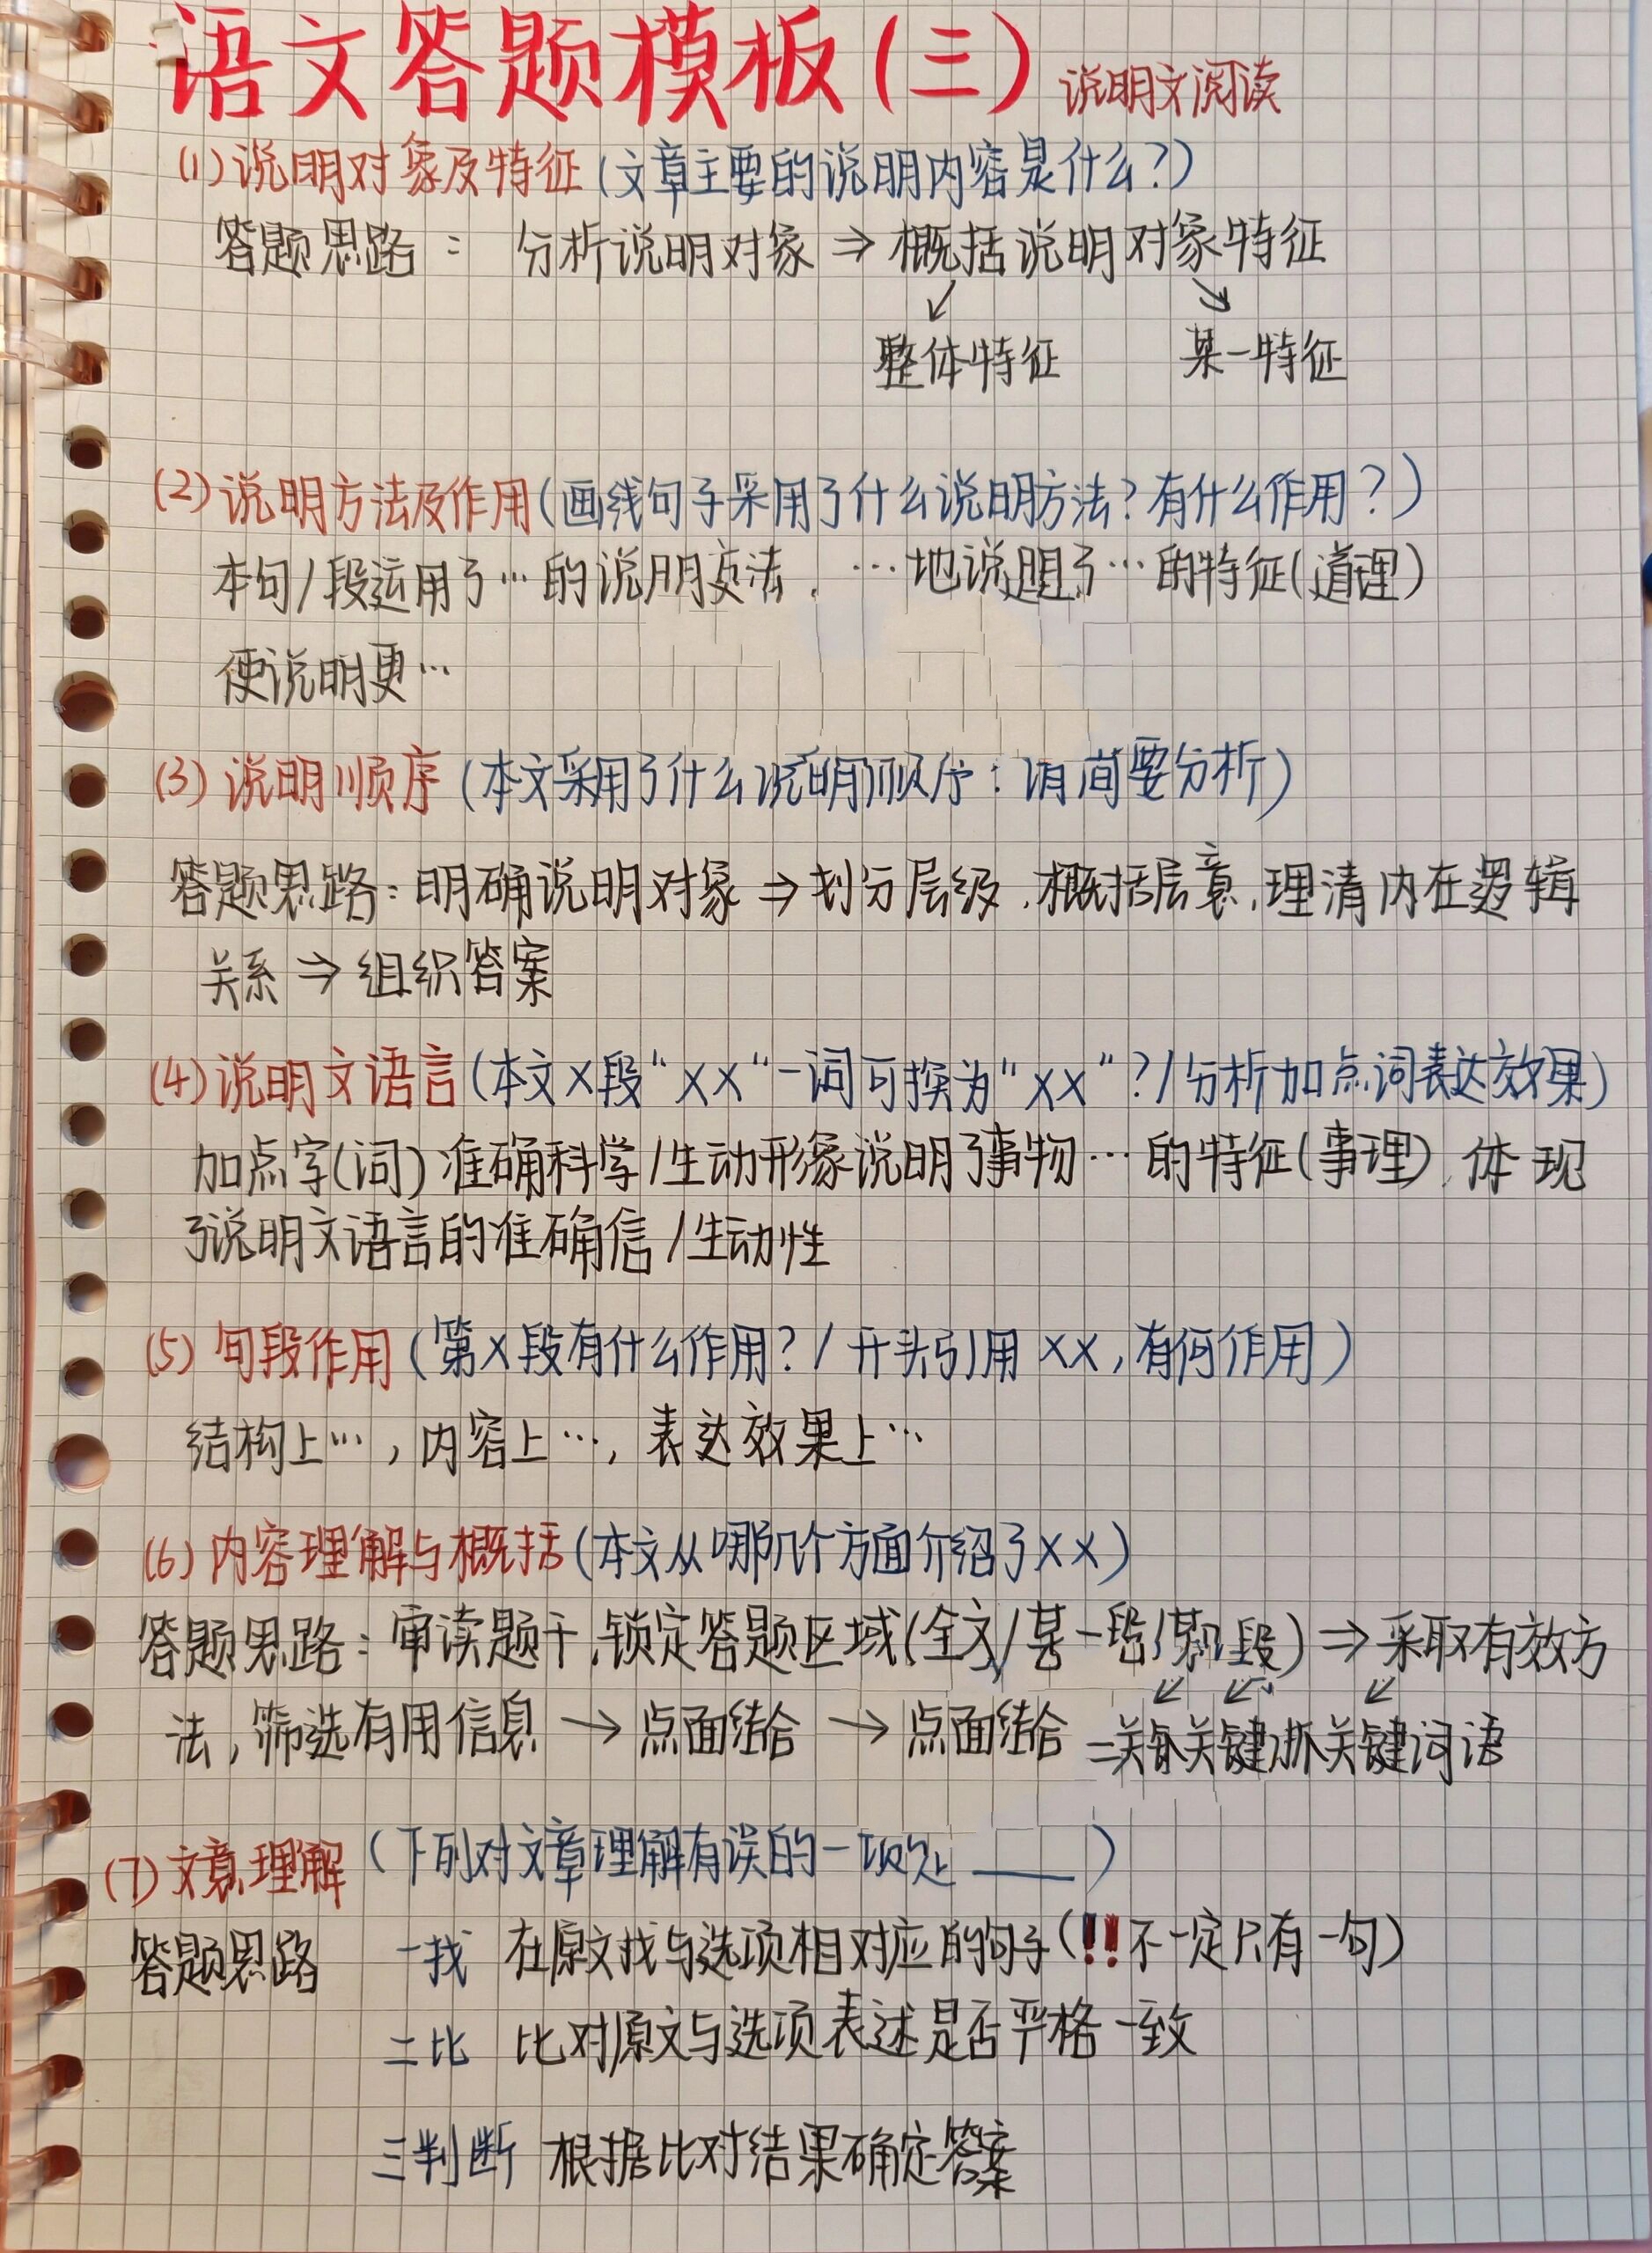 语文答题模板(三) 说明文阅读
(1)说明对象及特征(文章主要的说明内容是什么?)
答题思路: 分析说明对象⇒概括说明对象特征
↙ ↘
整体特征 某一特征
(2)说明方法及作用(画线句子采用了什么说明方法?有什么作用?)
本句/段运用了…的说明方法,…地说明了…的特征(道理)
使说明更…
(3)说明顺序(本文采用了什么说明顺序:请简要分析)
答题思路:明确说明对象⇒划分层级,概括层意,理清内在逻辑
关系⇒组织答案
(4)说明文语言(本文X段"XX"一词可换为"XX"?/分析加点词表达效果)
加点字(词)准确科学/生动形象说明了事物…的特征(事理),体现
了说明文语言的准确信/生动性
(5)句段作用(第X段有什么作用?/开头引用XX,有何作用)
结构上…,内容上…,表达效果上…
(6)内容理解与概括(本文从哪几个方面介绍了XX)
答题思路:审读题干,锁定答题区域(全文/某一段/某几段)⇒采取有效方
↙ ↙ ↙
法,筛选有用信息→点面结合→点面结合 关键 抓关键词语
(7)文意理解(下列对文章理解有误的一项是___)
答题思路 一找 在原文找与选项相对应的句子(!!不一定只有一句)
二比 比对原文与选项表述是否严格一致
三判断 根据比对结果确定答案